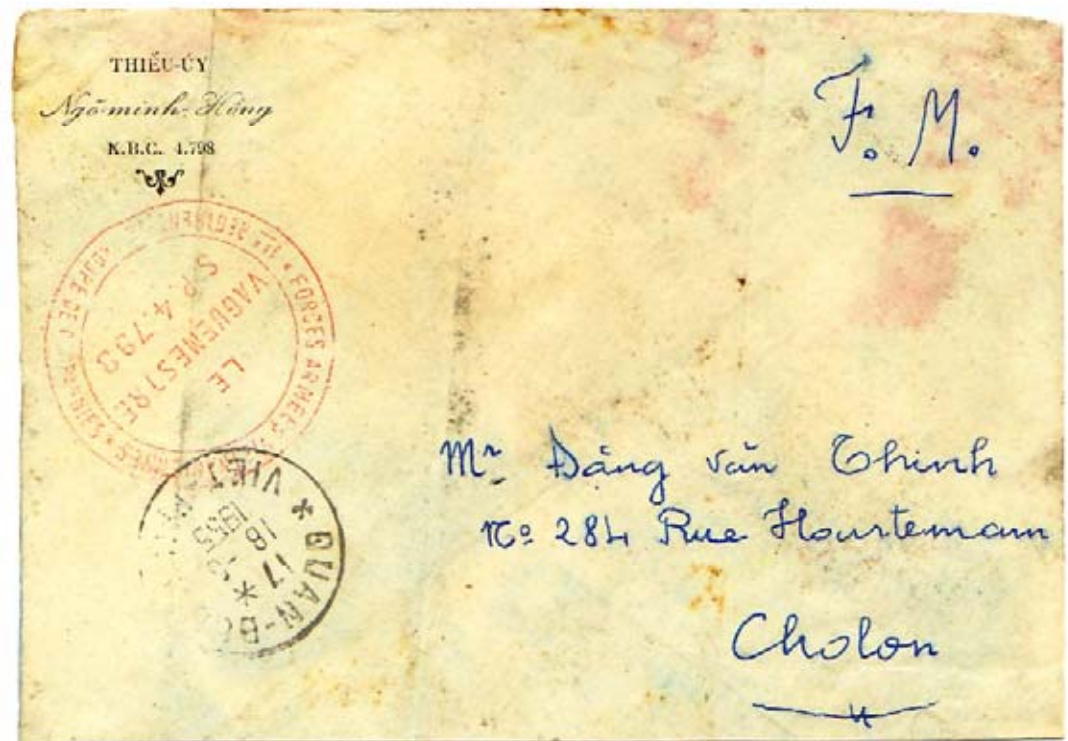 THIẾU-ÚY
Ngô-minh-Hồng
K.B.C. 4.798
F. M.
FORCES ARMÉES
LE
VAGUEMESTRE
S.P. 4.793
QUAN-BƯU
VIET-
17 *
18
1955
Mr Đặng văn Thinh
No 284 Rue Hourtemam
Cholon